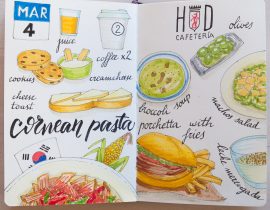 MAR
4
juice
coffee x2
2
cookies
creamcheese
cheese
toast
cornean pasta
HD
CAFETERÍA
olives
broccoli soup
nachos salad
porchetta with
fries